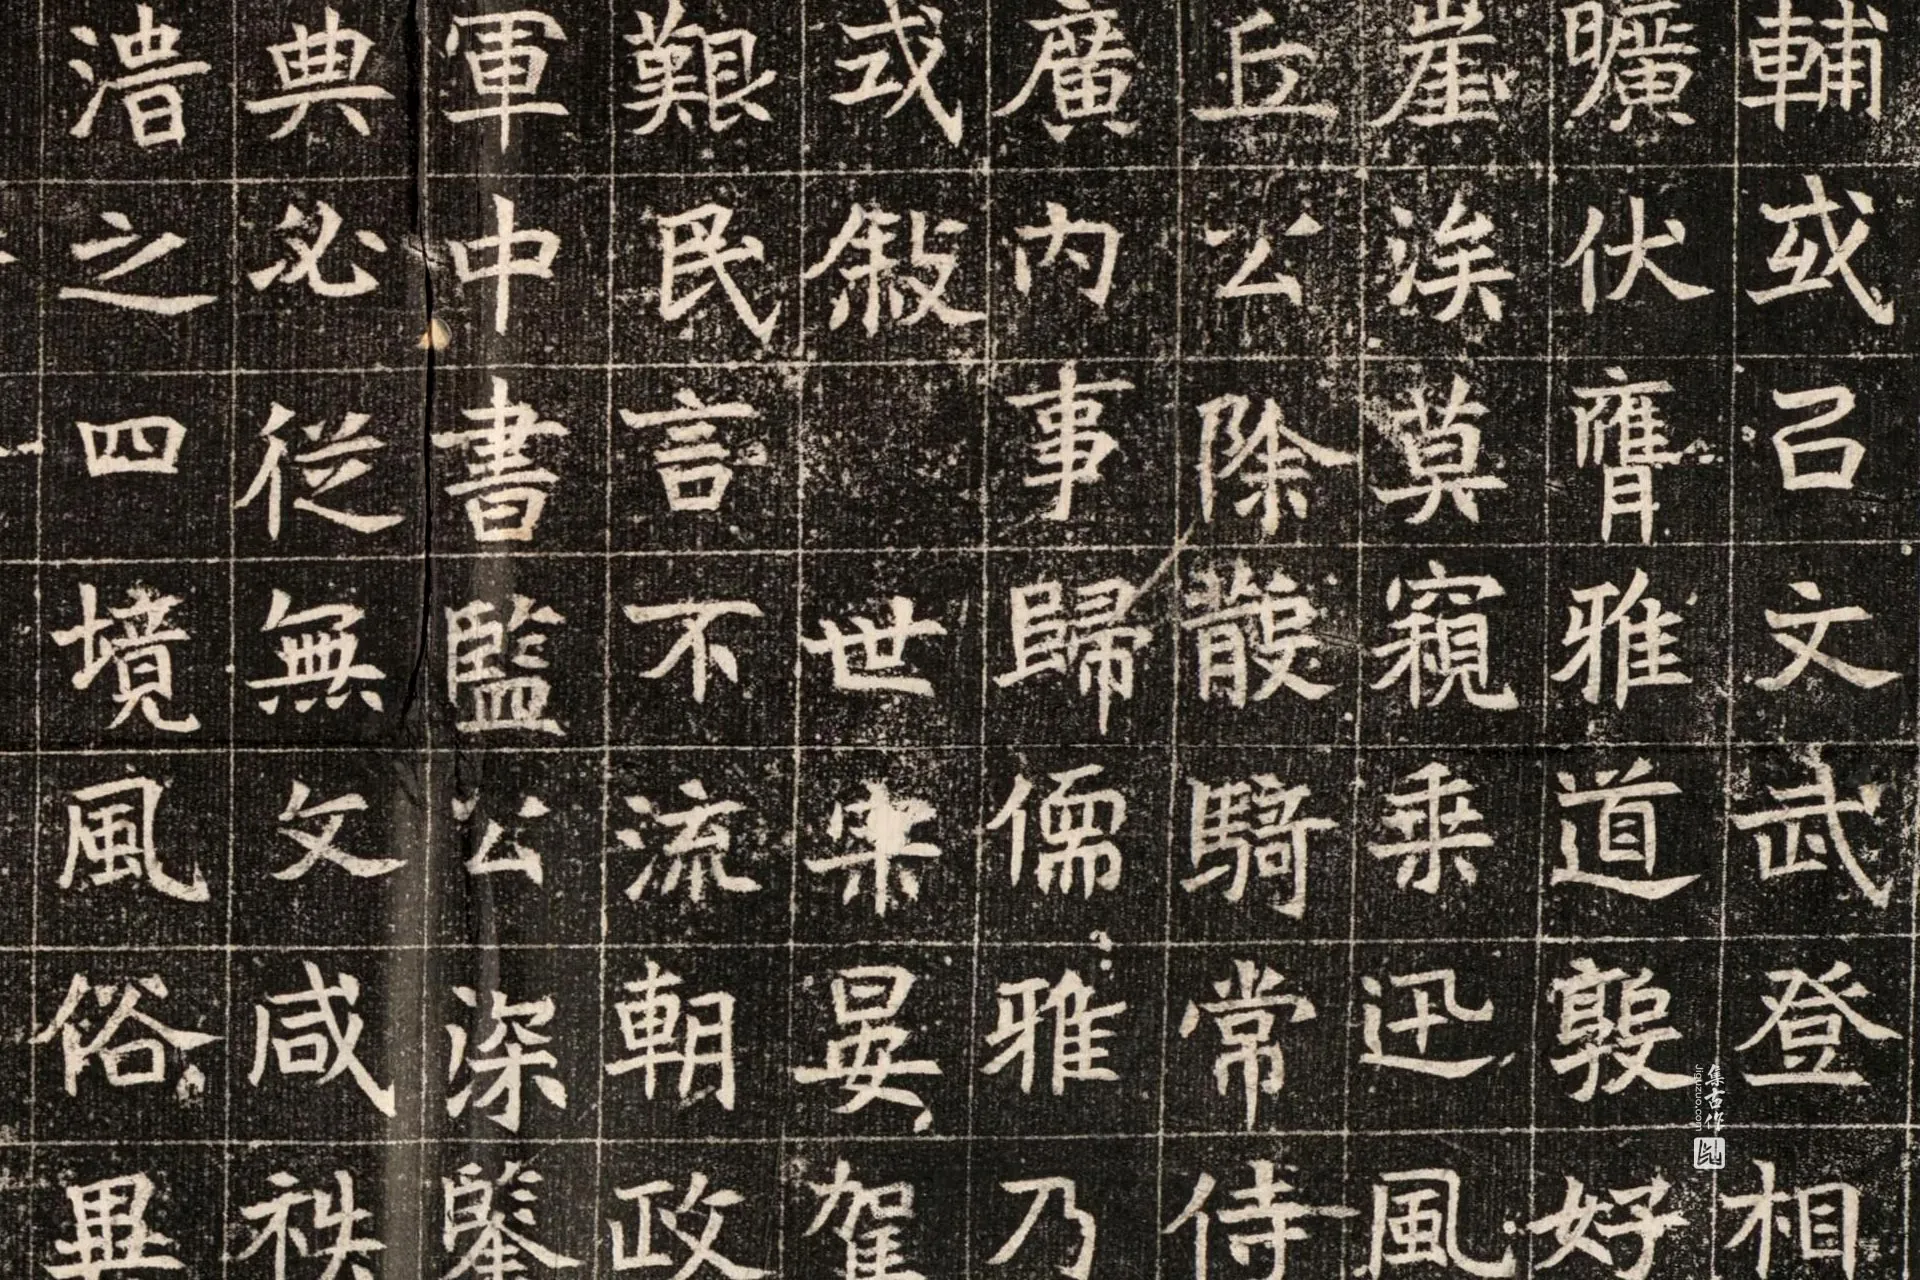 輔或召文武登相
曠伏膺雅道敦好
崖涘莫窺乗迅風
丘公除散騎常侍
廣内事歸儒雅乃
或叙 世宗晏駕
艱民言不流朝政
軍中書監公深鑒
典必從無文咸秩
之四境風俗異
集古作
Jiguzuo.com